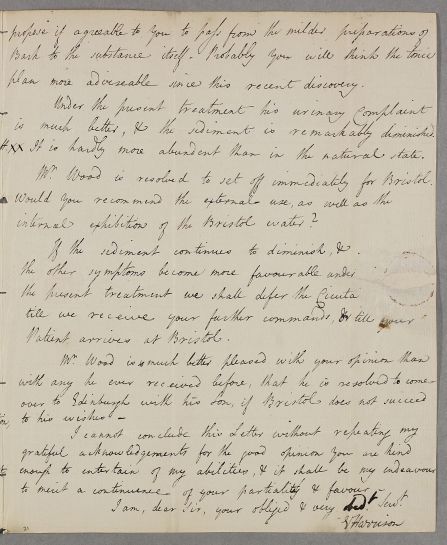 propose if agreeable to you to pass from the milder preparations of
Bark to the substance itself. Probably you will think the tonic
plan more adviseable since this recent discovery.
Under the present treatment his urinary Complaint
is much better, & the sediment is remarkably diminished
#XX It is hardly more abundant than in the natural state.
Mr. Wood is resolved to set off immediately for Bristol.
Would you recommend the external use, as well as the
internal exhibition of the Bristol water?
If the sediment continues to diminish, &
the other symptoms become more favourable under
the present treatment we shall defer the Cicuta
till we receive your further commands, or till your
Patient arrives at Bristol.
Mr. Wood is so much better pleased with your opinion than
with any he ever received before, that he is resolved to come
over to Edinburgh with his Son, if Bristol does not succeed
to his wishes –
I cannot conclude this Letter without repeating my
grateful acknowledgements for the good opinion you are kind
enough to entertain of my abilities, & it shall be my endeavour
to merit a continuance of your partiality & favour –
I am, dear Sir, your obliged & very hble Servt.
Harrison